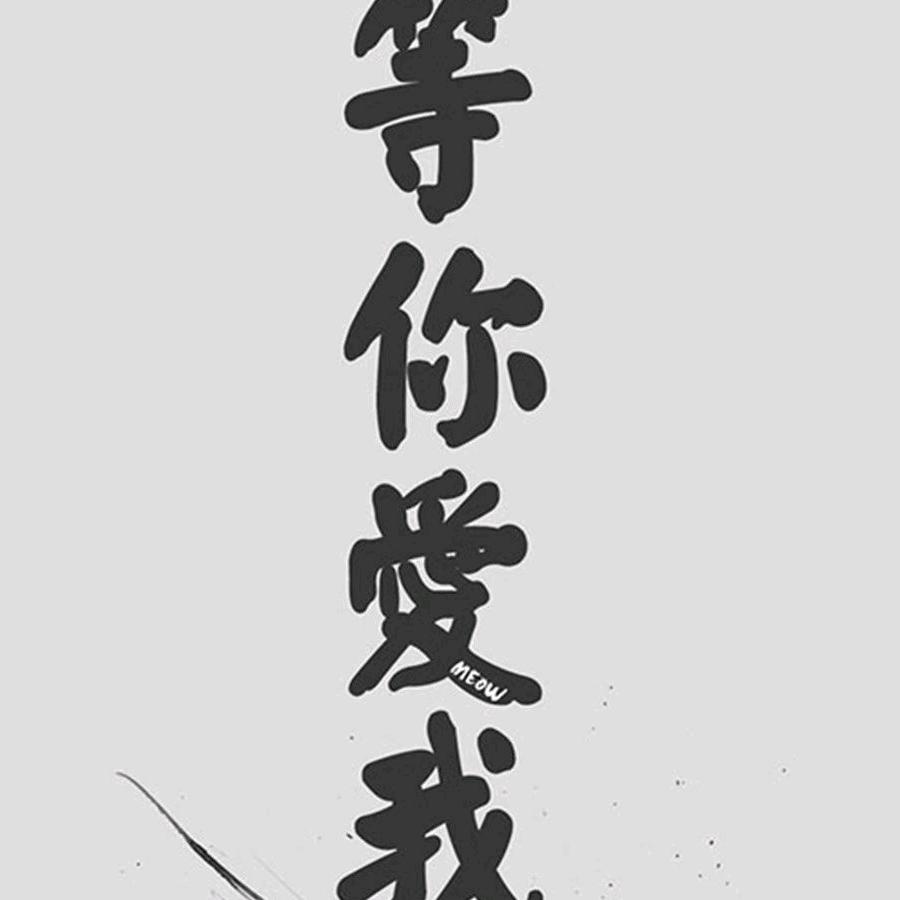 等你愛我
MEOW